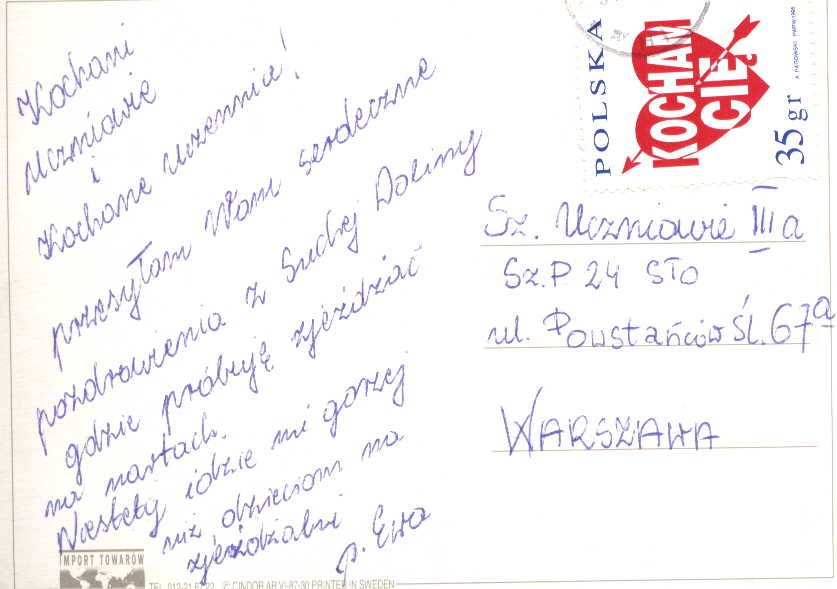 Kochani
Uczniowie
i
Kochane uczennice!
przesyłam Wam serdeczne
pozdrowienia z Suchej Doliny
gdzie próbuję zjeżdżać
na nartach.
Niestety idzie mi gorzej
niż dzieciom na
zjeżdżalni
p. Ewa
POLSKA
KOCHAM
CIĘ
35 gr
Sz. Uczniowie III a
Sz.P 24 STO
ul. Powstańców Śl. 67a
WARSZAWA
IMPORT TOWARÓW
© CINDOR AB VI-87-30 PRINTED IN SWEDEN